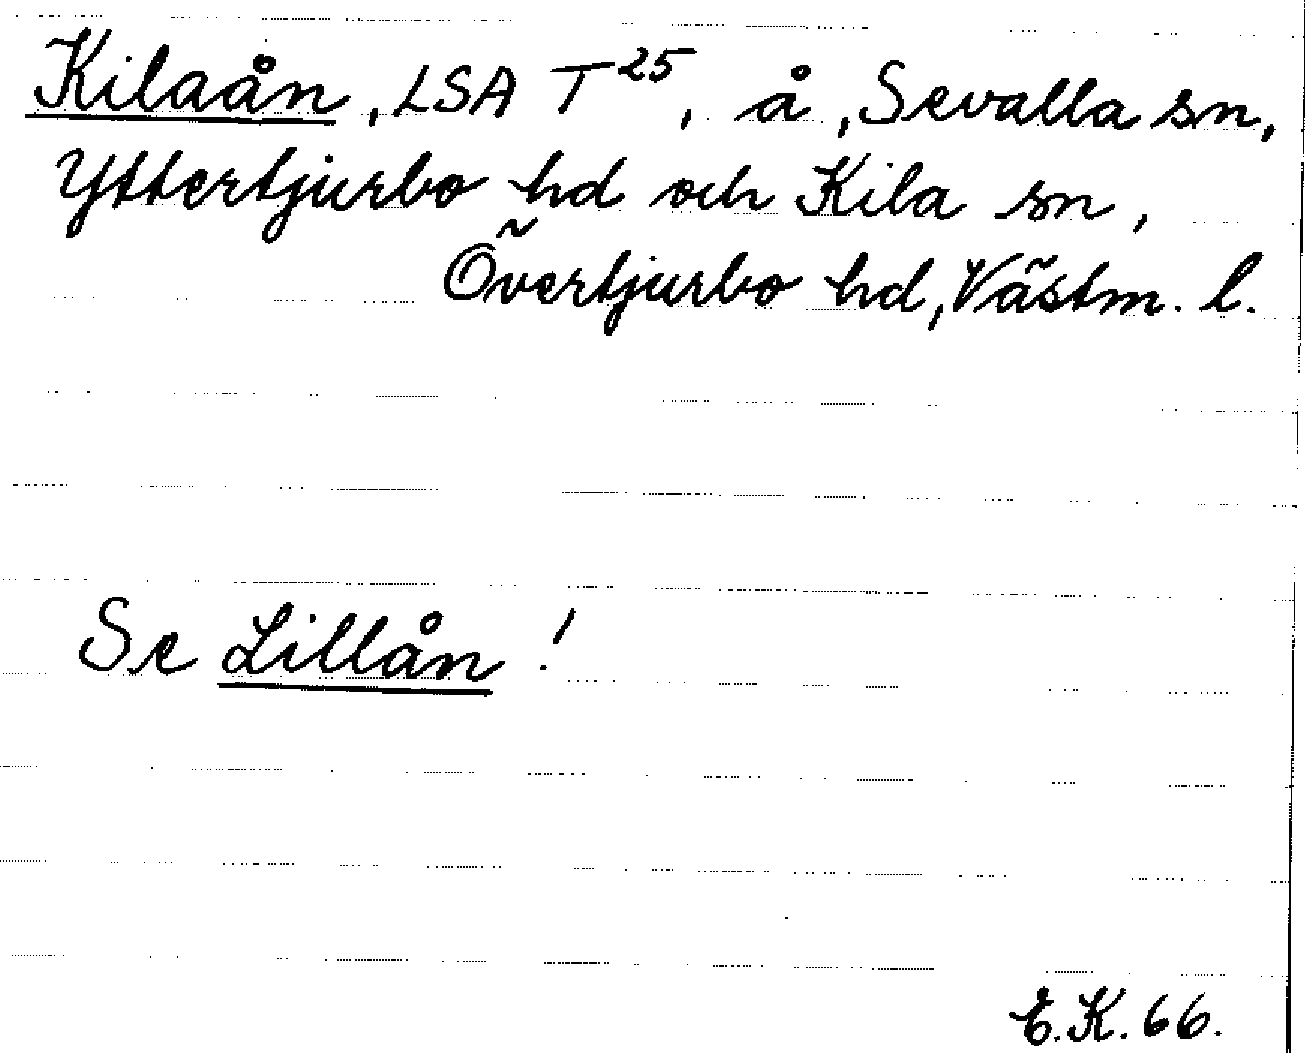 Kilaån, LSA T25, å, Sevalla sn,
Yttertjurbo hd och Kila sn,
Övertjurbo hd, Västm. l.
Se Lillån!
E.K. 66.